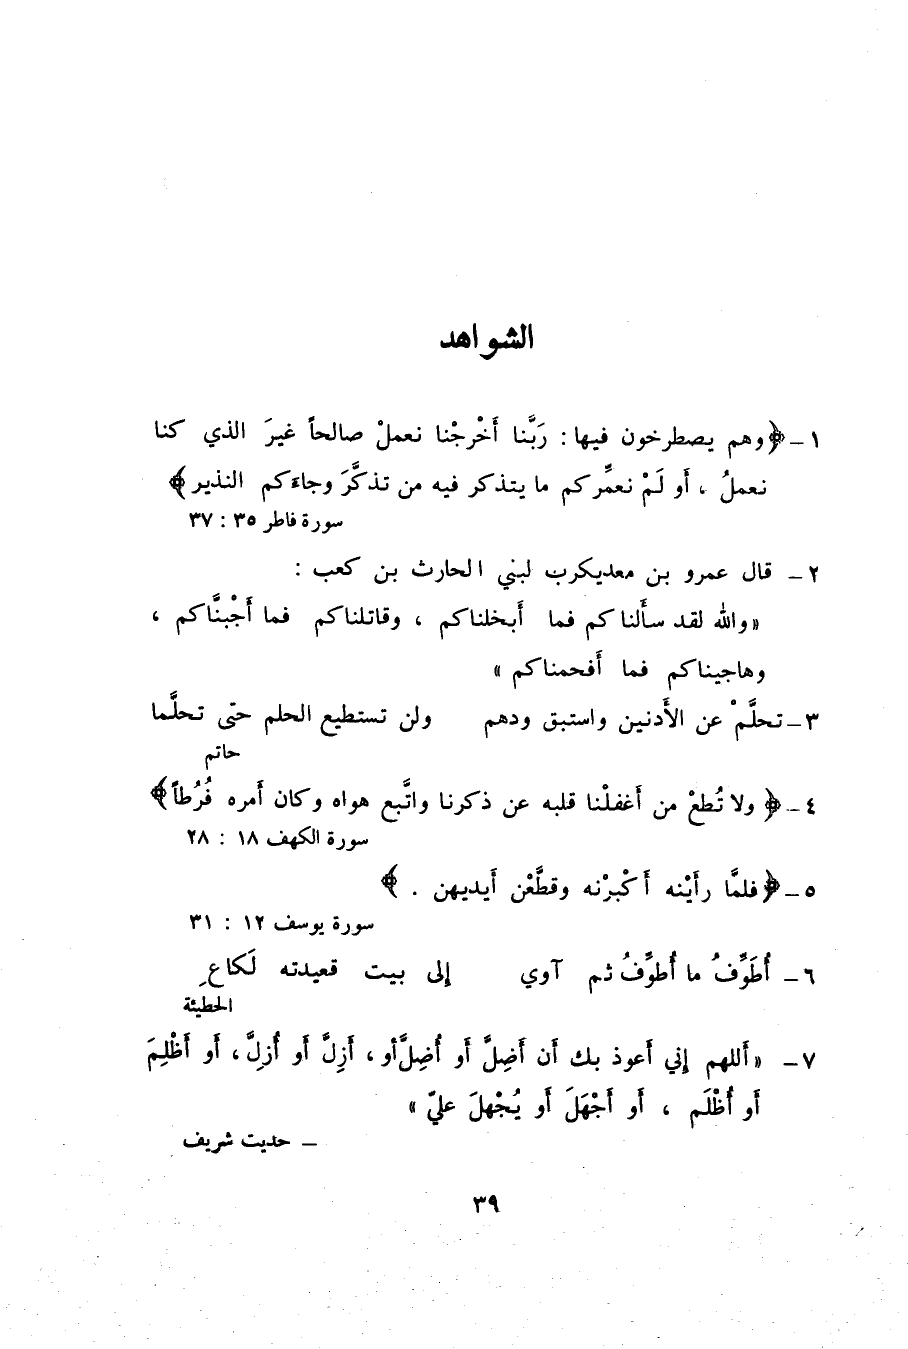 الشواهد
١ – ﴿وهم يصطرخون فيها: رَبَّنا أَخْرجْنا نعملْ صالحاً غيرَ الذي كنا
نعملُ ، أَو لَمْ نعمِّركم ما يتذكر فيه من تذكَّرَ وجاءَكم النذير﴾
سورة فاطر ٣٥ : ٣٧
٢ – قال عمرو بن معديكرب لبني الحارث بن كعب :
«والله لقد سأَلناكم فما أَبخلناكم ، وقاتلناكم فما أَجْبنَّاكم ،
وهاجيناكم فما أَفحمناكم »
٣ – تحلَّمْ عن الأَدنين واستبق ودهم ولن تستطيع الحلم حتى تحلَّما
حاتم
٤ – ﴿ ولا تُطعْ من أَغفلْنا قلبه عن ذكرنا واتَّبع هواه وكان أَمره فُرُطاً﴾
سورة الكهف ١٨ : ٢٨
٥ – ﴿فلمَّا رأَيْنه أَكْبرْنه وقطَّعْن أَيديهن . ﴾
سورة يوسف ١٢ : ٣١
٦ – أُطَوِّفُ ما أُطوِّفُ ثم آوي إلى بيت قعيدته لَكاعِ
الحطيئة
٧ – « أَللهم إني أَعوذ بك أَن أَضِلَّ أَو أُضِلَّ أو ، أَزِلَّ أَو أُزلَّ ، أَو أَظْلِمَ
أَو أُظْلَم ، أَو أَجْهَلَ أَو يُجْهلَ عليّ »
– حديث شريف
٣٩